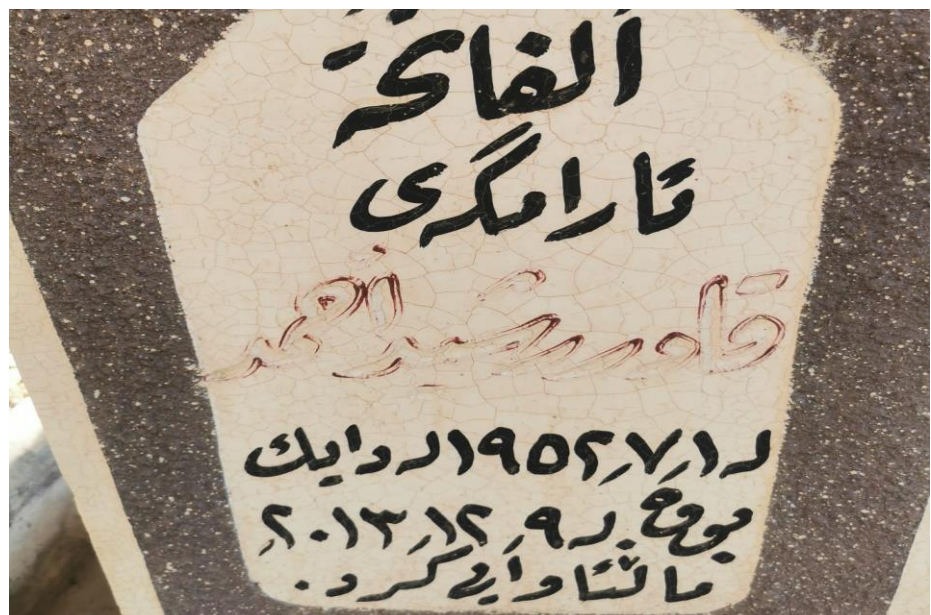 الفاتحة
ئارامگەی
قادر أحمد
لە ١/٧/١٩٥٢ لە دایك
بووە و لە ٩/١٢/٢٠١٣
مالئاوایی كرد.